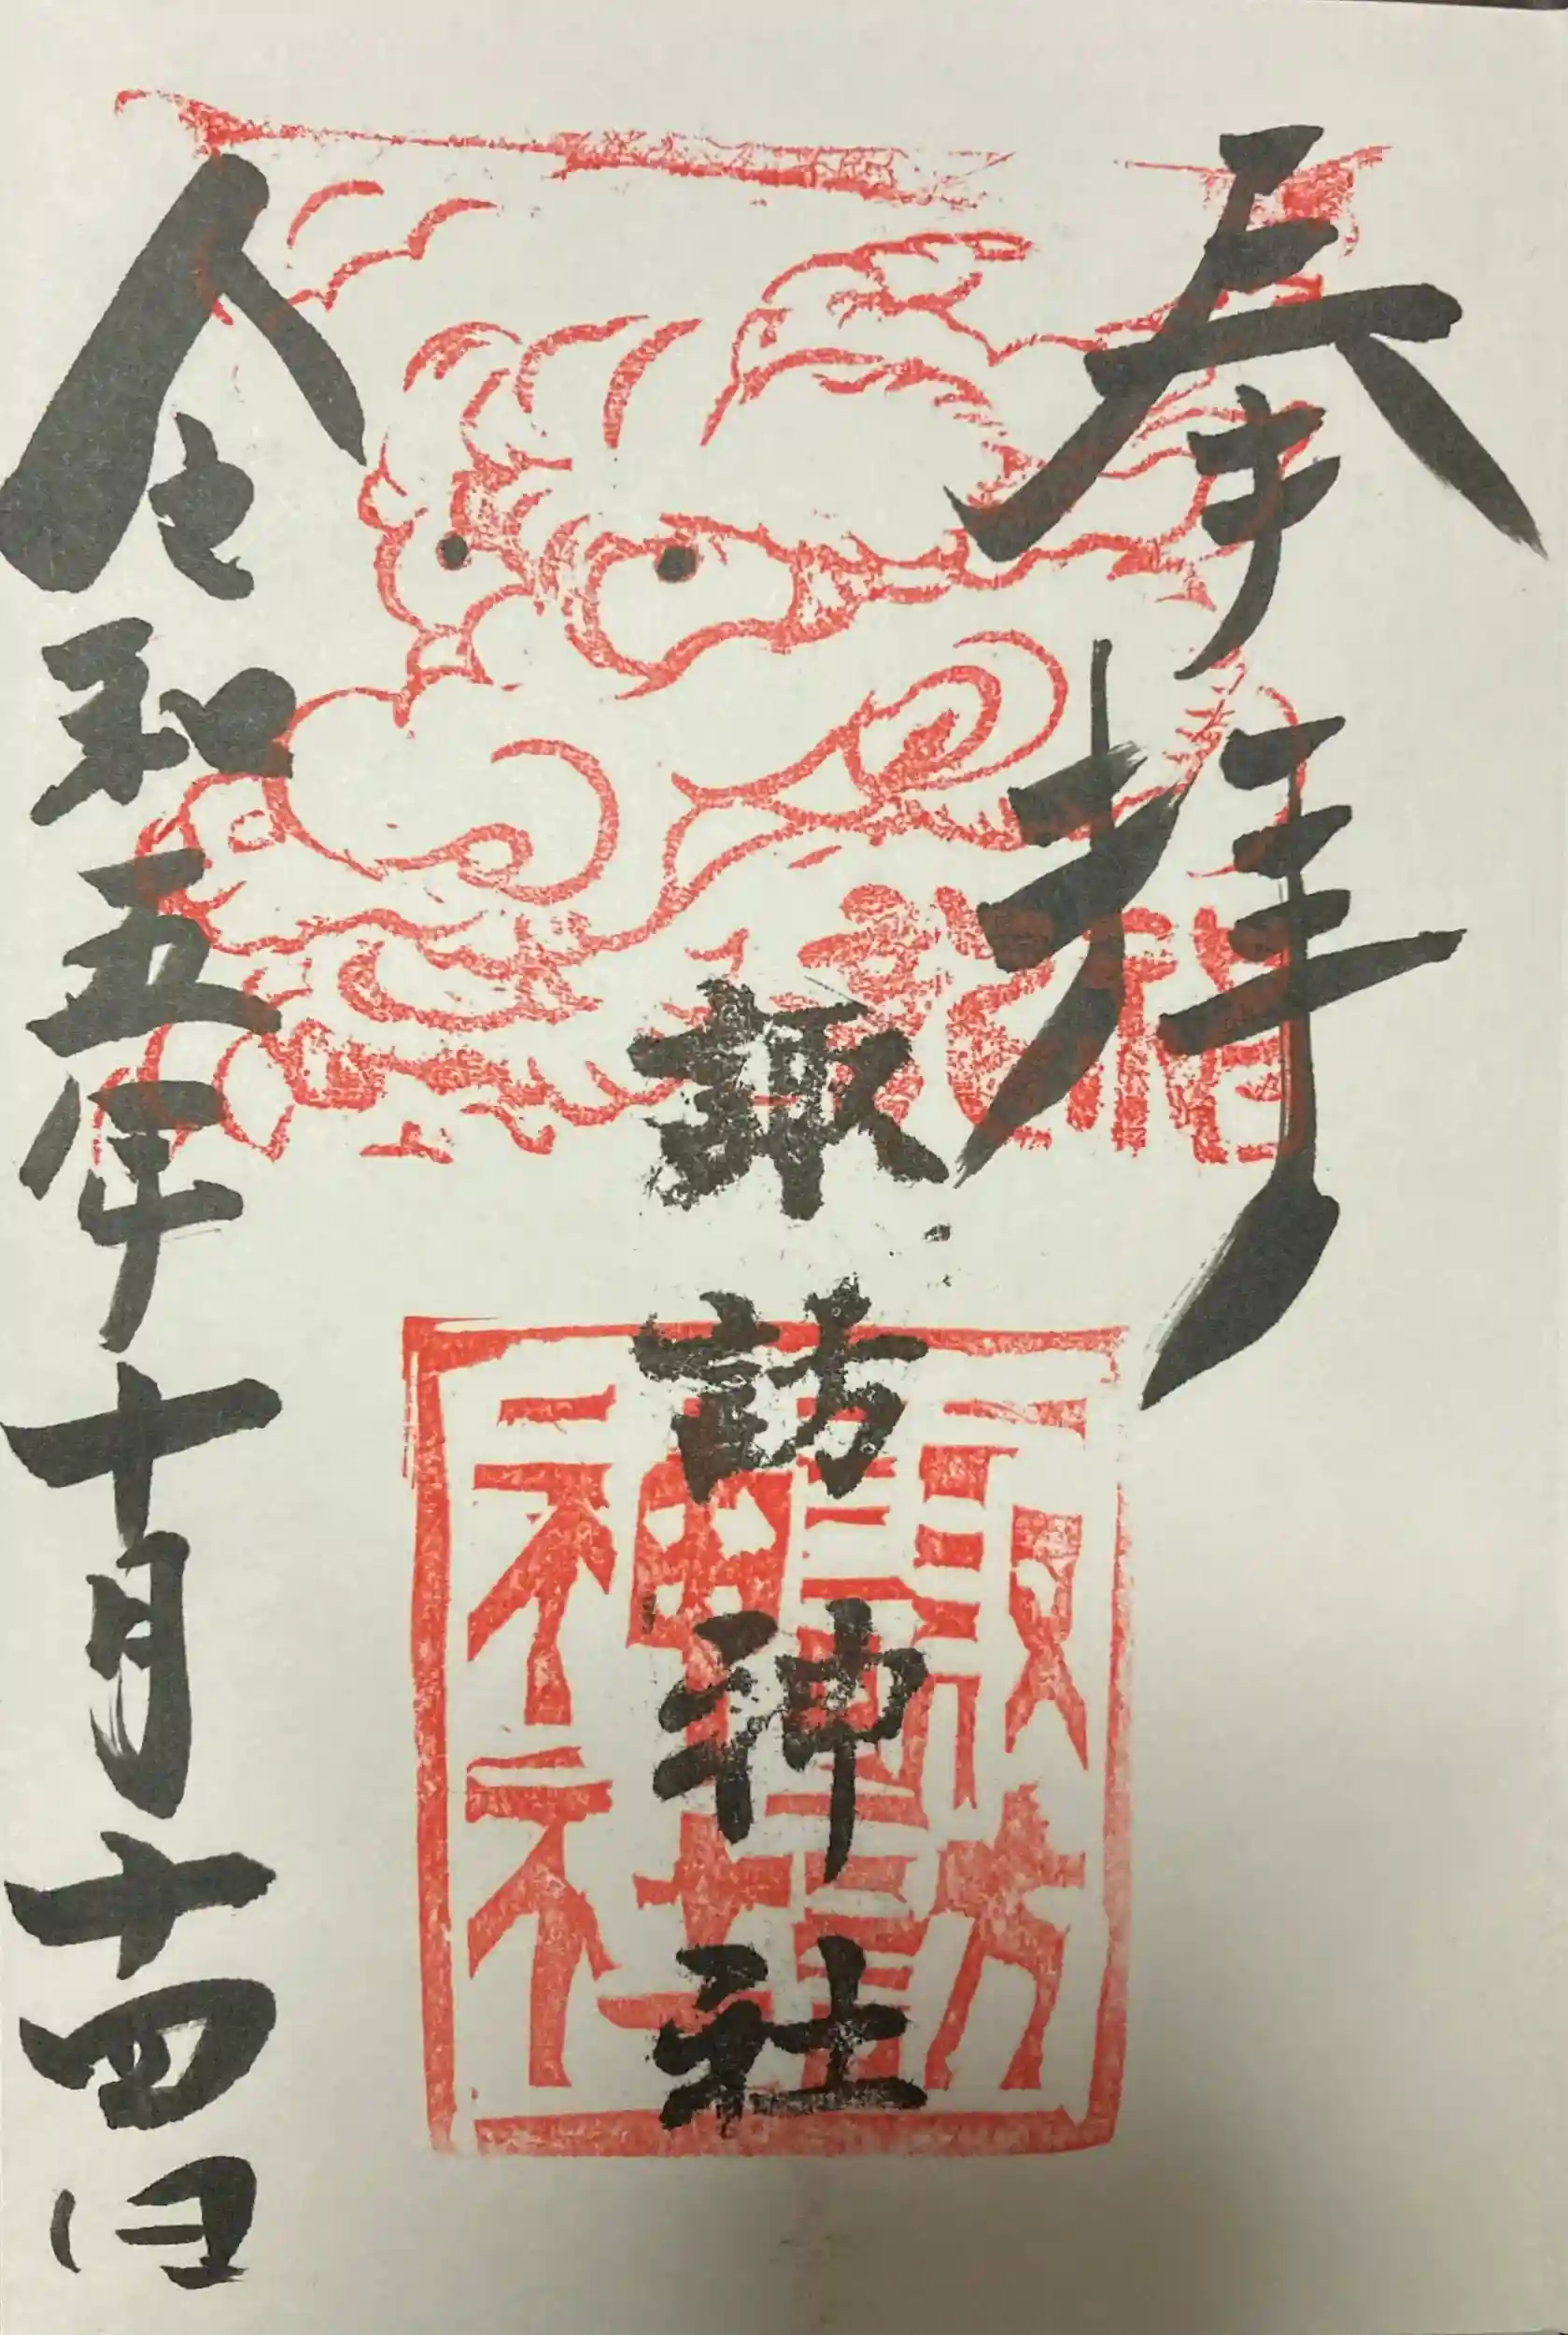 奉拝
諏訪神社
諏訪
神社
令和五年十月十四日